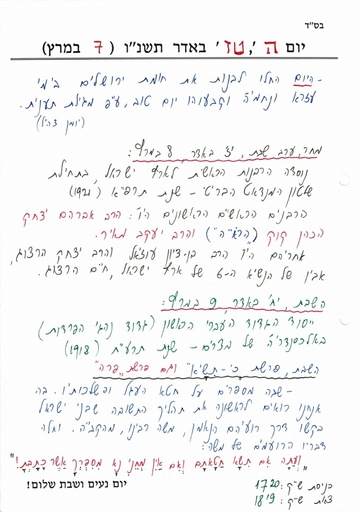 בס"ד
יום ה', טז' באדר תשנ"ו ( 7 במרץ)
- היום החלו לבנות את חומת ירושלים בימי
עזרא ונחמיה וקבעוהו יום טוב, ע"פ מגילת תענית.
(יומן צה"ל)
מחר, ערב שבת, יז' באדר, 8 במרץ:
נוסדה הרבנות הראשית לארץ ישראל, בתחילת
שלטון המנדאט הבריטי - שנת תרפ"א (1921)
הרבנים הראשיים הראשונים היו: הרב אברהם יצחק
הכהן קוק (הראי"ה) והרב יעקב מאיר.
אחריהם היו הרב בן-ציון עוזיאל והרב יצחק הרצוג,
אביו של הנשיא ה-6 של ארץ ישראל, חיים הרצוג.
השבת, יח' באדר, 9 במרץ:
ייסוד הגדוד העברי הראשון (גדוד נהגי הפרדות)
באלכסנדריה של מצרים - שנת תרע"ח (1918)
השבת, פרשת "כי-תשא" וגם פרשת "פרה"
- שבה מסופרים על חטא העגל והשלכותיו. בה
אנחנו רואים לראשונה את תהליך התשובה שבני ישראל
בקשו דרך רועיהם הנאמן, משה רבינו, מהקב"ה. ואלה
דבריו הרועמים של משה:
"ועתה אם תשא חטאתם ואם אין מחני נא מספרך אשר כתבת!"
יום נעים ושבת שלום!
כניסת ש"ק: 17:20
צאת ש"ק: 18:19